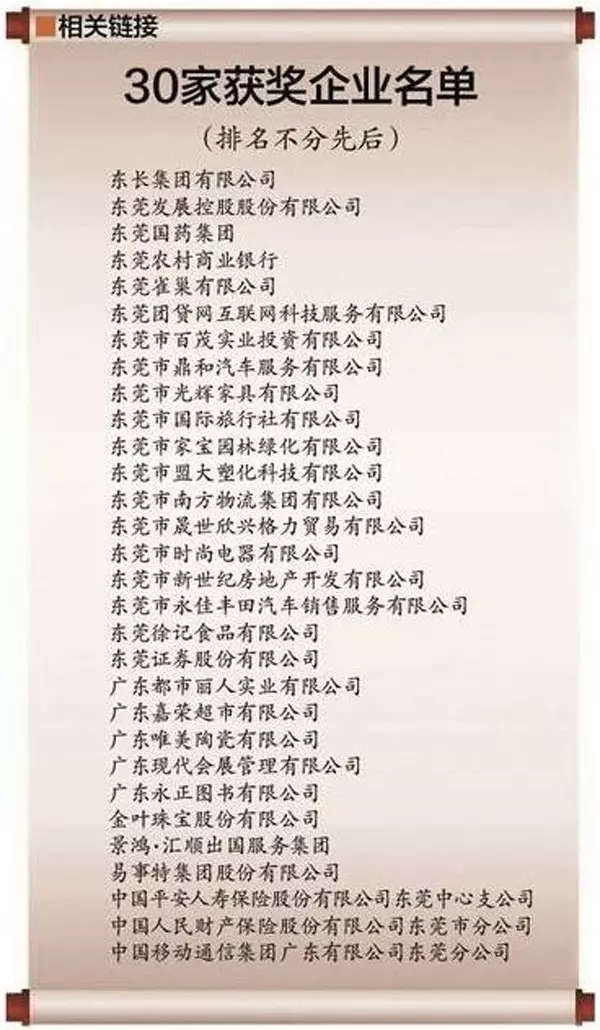 相关链接
30家获奖企业名单
（排名不分先后）
东长集团有限公司
东莞发展控股股份有限公司
东莞国药集团
东莞农村商业银行
东莞雀巢有限公司
东莞团贷网互联网科技服务有限公司
东莞市百茂实业投资有限公司
东莞市鼎和汽车服务有限公司
东莞市光辉家具有限公司
东莞市国际旅行社有限公司
东莞市家宝园林绿化有限公司
东莞市盟大塑化科技有限公司
东莞市南方物流集团有限公司
东莞市晟世欣兴格力贸易有限公司
东莞市时尚电器有限公司
东莞市新世纪房地产开发有限公司
东莞市永佳丰田汽车销售服务有限公司
东莞徐记食品有限公司
东莞证券股份有限公司
广东都市丽人实业有限公司
广东嘉荣超市有限公司
广东唯美陶瓷有限公司
广东现代会展管理有限公司
广东永正图书有限公司
金叶珠宝股份有限公司
景鸿·汇顺出国服务集团
易事特集团股份有限公司
中国平安人寿保险股份有限公司东莞中心支公司
中国人民财产保险股份有限公司东莞市分公司
中国移动通信集团广东有限公司东莞分公司